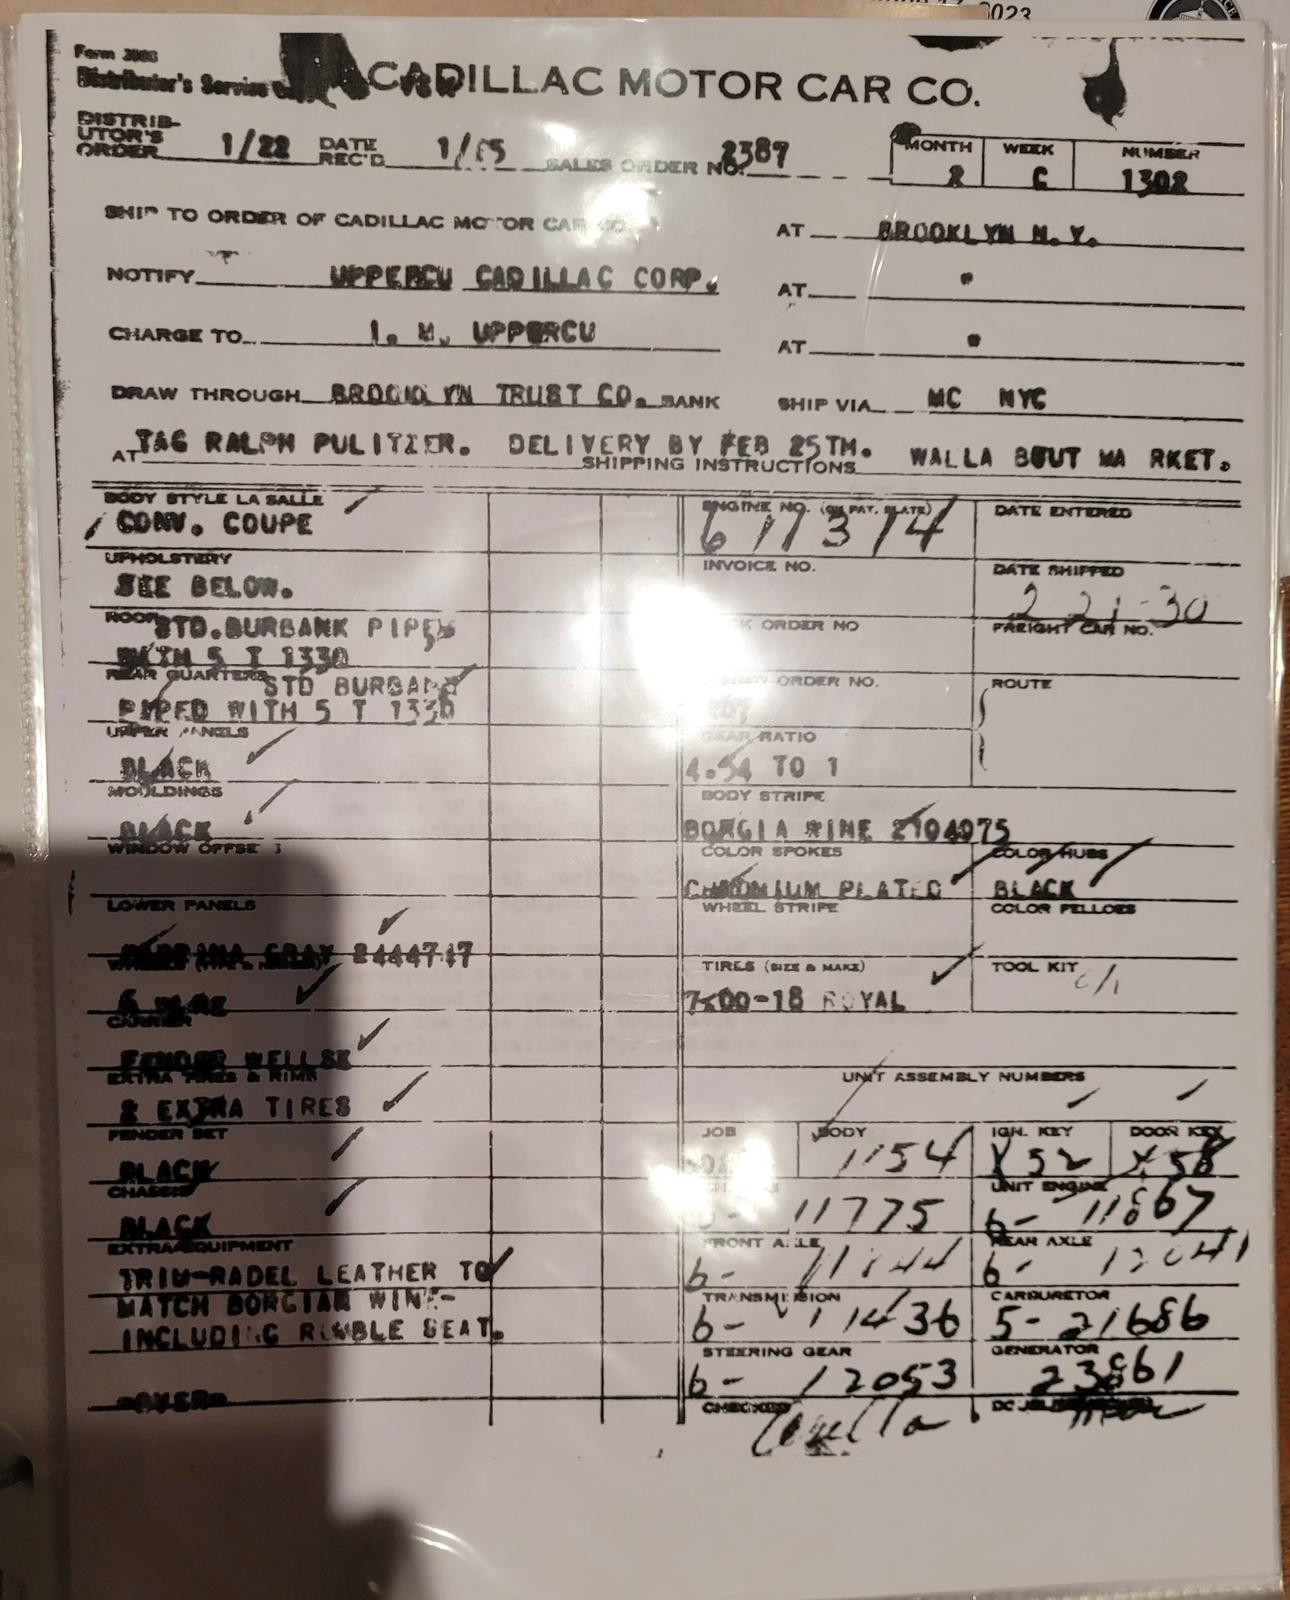 2023
Form
Distributor's Service
CADILLAC MOTOR CAR CO.
DISTRIB-
UTOR'S
ORDER 1/22 DATE REC'D 1/ SALES ORDER NO. 2387
MONTH WEEK NUMBER
2 C 1302
SHIP TO ORDER OF CADILLAC MOTOR CAR CO. AT BROOKLYN N.Y.
NOTIFY UPPERCU CADILLAC CORP. AT "
CHARGE TO I. M. UPPERCU AT "
DRAW THROUGH BROOKLYN TRUST CO. BANK SHIP VIA MC NYC
AT TAG RALPH PULITZER. DELIVERY BY FEB 25TH. WALLA BOUT MA RKET.
SHIPPING INSTRUCTIONS
BODY STYLE LA SALLE ENGINE NO. (ON PAT. PLATE) DATE ENTERED
CONV. COUPE 611314
UPHOLSTERY INVOICE NO. DATE SHIPPED
SEE BELOW. 2 21-30
ROOF STD. BURBANK PIPED ORDER NO FREIGHT CAR NO.
WITH 5 T 1330
REAR QUARTERS STD BURBANK ORDER NO. ROUTE
PIPED WITH 5 T 1330
UPPER PANELS GEAR RATIO
BLACK 4.54 TO 1
MOULDINGS BODY STRIPE
BLACK BORGIA WINE 2104075
WINDOW OFFSETS COLOR SPOKES COLOR HUBS
CHROMIUM PLATED BLACK
LOWER PANELS WHEEL STRIPE COLOR FELLOES
GRAY 2444717
WHEELS TIRES (SIZE & MAKE) TOOL KIT
6 WIRE 7.00-18 ROYAL
CARRIER
FENDER WELLS
EXTRA TIRES & RIMS UNIT ASSEMBLY NUMBERS
2 EXTRA TIRES
FENDER SET JOB BODY IGN. KEY DOOR KEY
BLACK 1154 X52 X58
CHASSIS UNIT ENGINE
BLACK 11775 6- 11867
EXTRA EQUIPMENT FRONT AXLE REAR AXLE
TRIM-RADEL LEATHER TO 6- 6- 12041
MATCH BORGIAN WINE- TRANSMISSION CARBURETOR
INCLUDING RUMBLE SEAT. 6- 11436 5-21686
STEERING GEAR GENERATOR
6- 12053 23861
-OVER- CHECKED